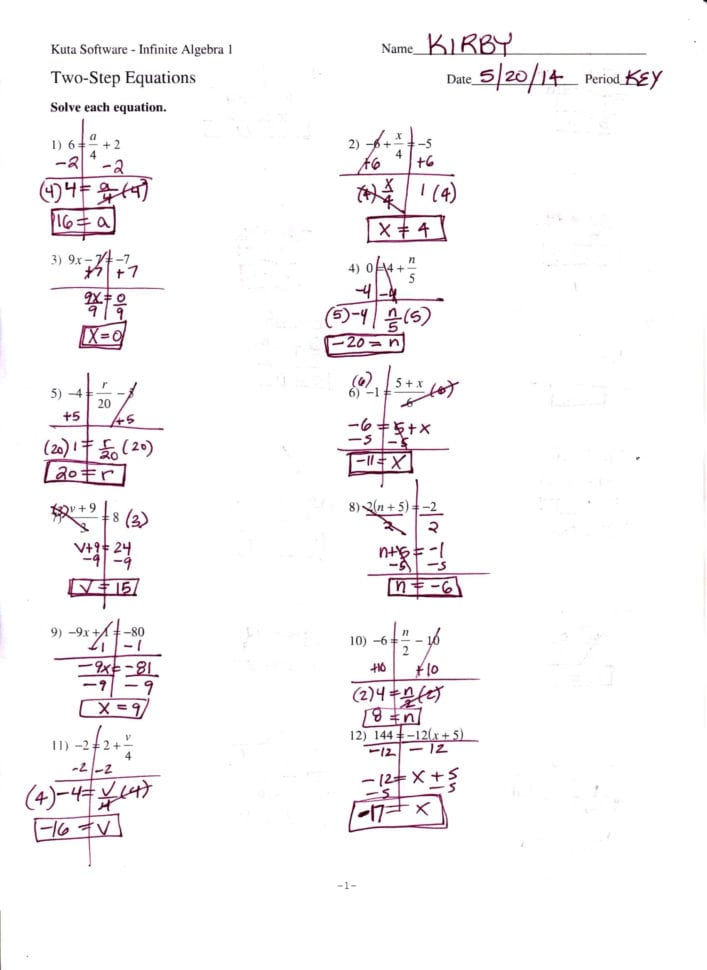 Kuta Software - Infinite Algebra 1
Name KIRBY
Two-Step Equations
Date 5/20/14 Period KEY
Solve each equation.
1) 6 = a/4 + 2
-2 -2
(4) 4 = a/4 (4)
16 = a
2) -6 + x/4 = -5
+6 +6
(4) x/4 1 (4)
x = 4
3) 9x - 7 = -7
+7 +7
9x/9 = 0/9
x = 0
4) 0 = 4 + n/5
-4 -4
(5) -4 n/5 (5)
-20 = n
5) -4 = r/20 - 5
+5 +5
(20) 1 = r/20 (20)
20 = r
(6) 6) -1 = 5 + x/6 (6)
-6 = 5 + x
-5 -5
-11 = x
(3) v + 9/3 = 8 (3)
v + 9 = 24
-9 -9
v = 15
8) 2(n + 5)/2 = -2/2
n + 5 = -1
-5 -5
n = -6
9) -9x + 1 = -80
-1 -1
-9x/-9 = -81/-9
x = 9
10) -6 = n/2 - 10
+10 +10
(2) 4 = n/2 (2)
8 = n
11) -2 = 2 + v/4
-2 -2
(4) -4 = v/4 (4)
-16 = v
12) 144 = -12(x + 5)
-12 -12
-12 = x + 5
-5 -5
-17 = x
-1-